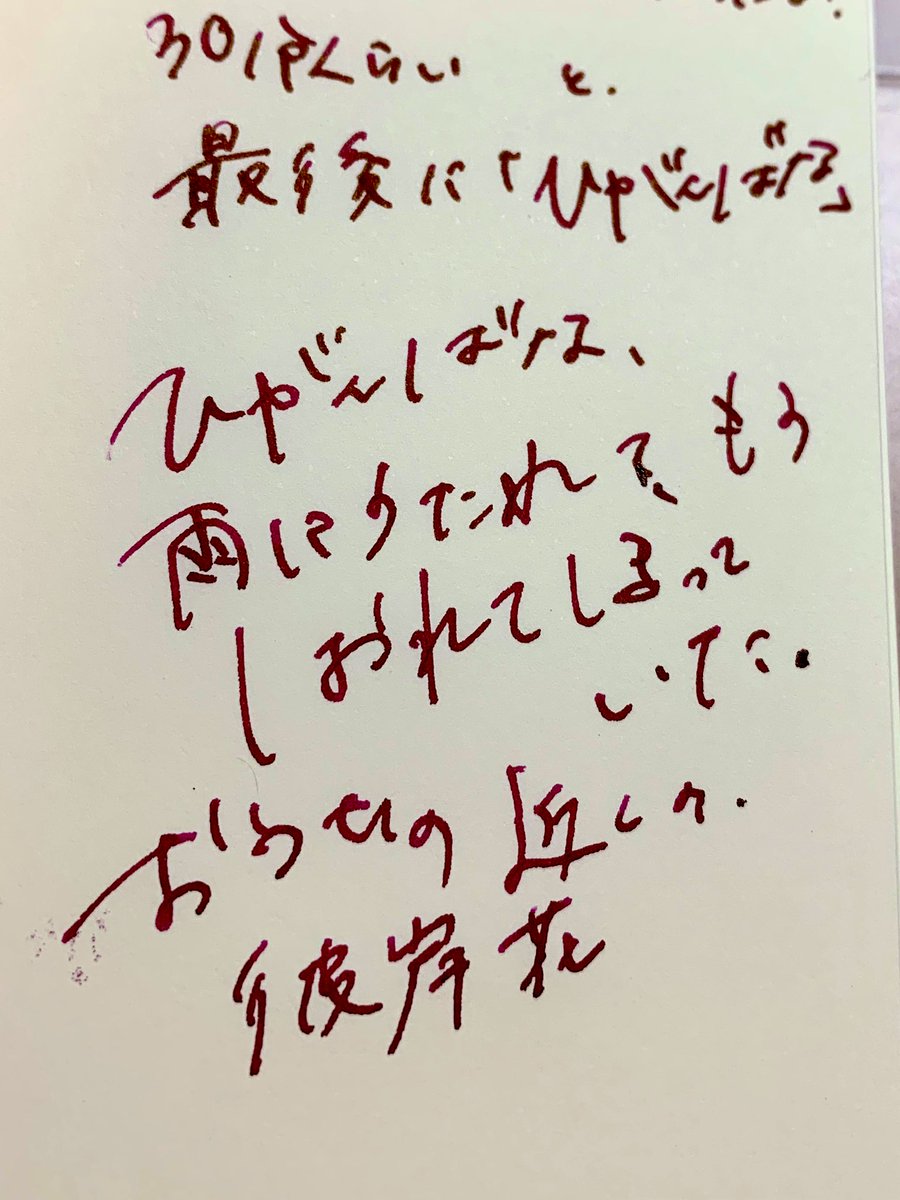 30 くらい と.
最後に「ひがんばな」
ひがんばな、
雨にうたれて、もう
しおれてしまって
いた.
おうちの近くの.
彼岸花